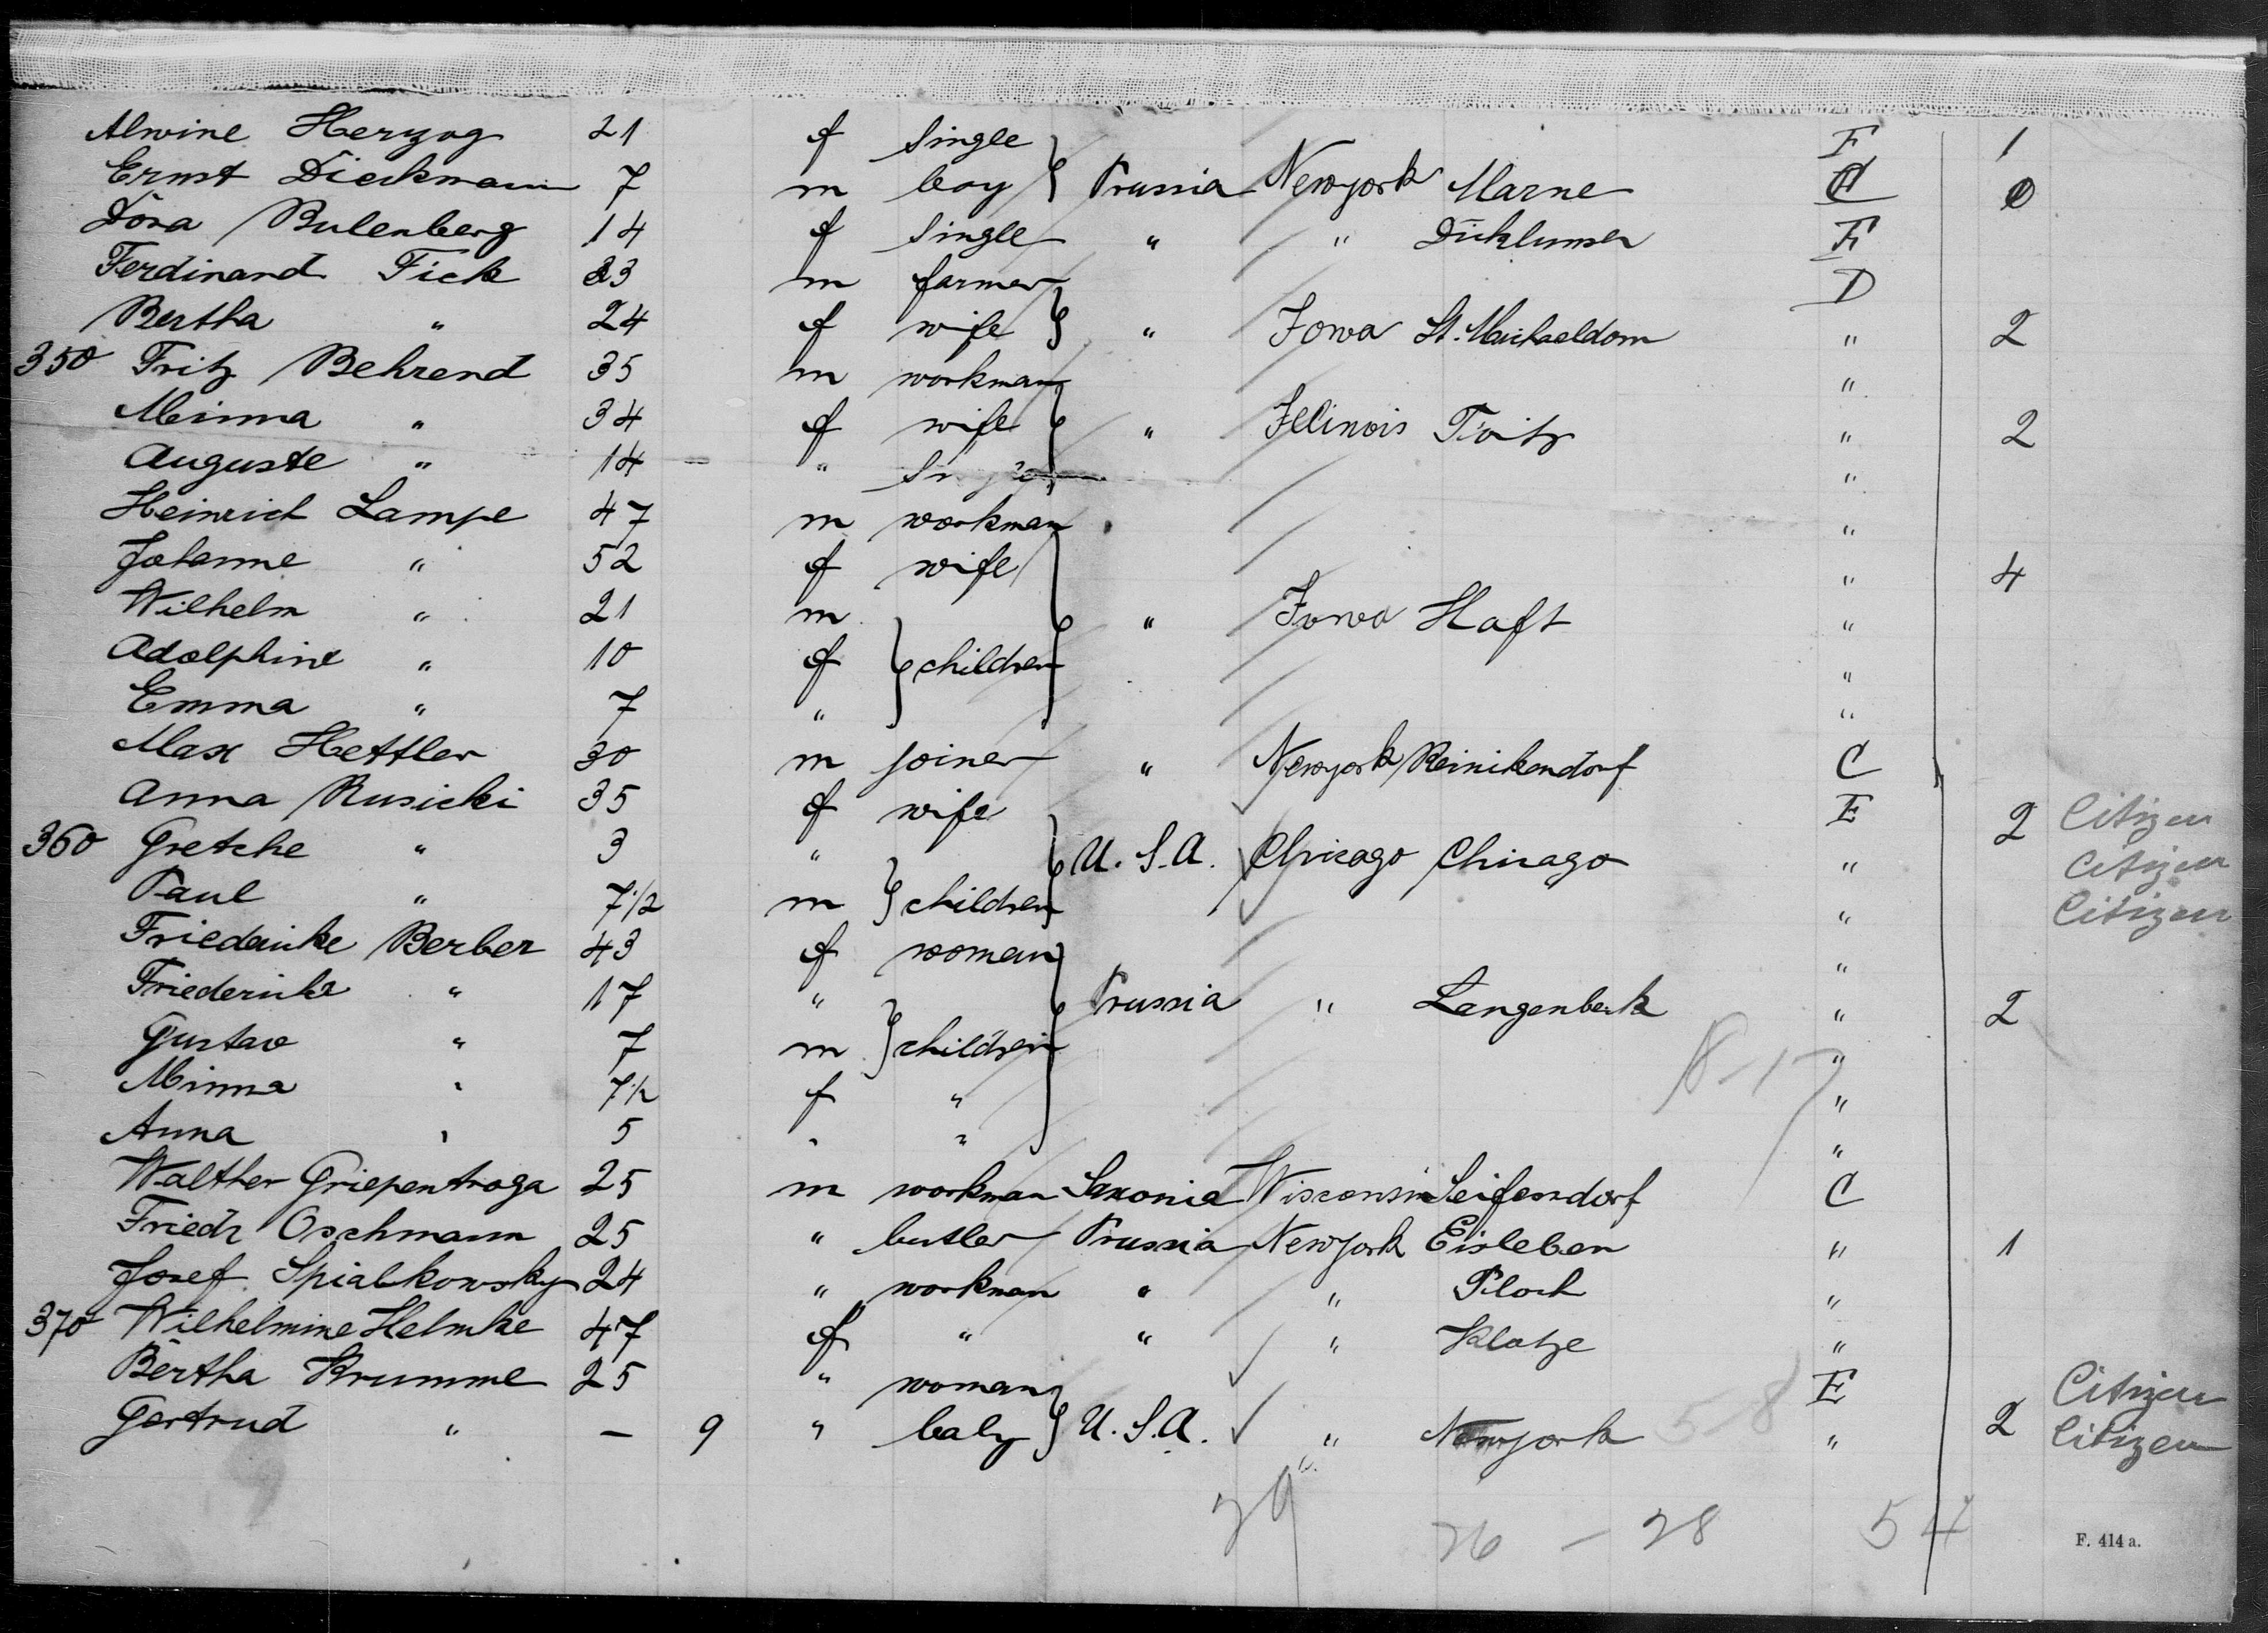 Alwine Herzog 21 f single F 1
Ernst Dieckmann 7 m boy Prussia Newyork Marne
Dora Bulenberg 14 f single " " F
Ferdinand Fick 33 m farmer D
Bertha " 24 f wife " Iowa St. Michaeldom " 2
350 Fritz Behrend 35 m workman "
Minna " 34 f wife " Illinois " 2
Auguste " 14 " "
Heinrich Lampe 47 m workman "
Johanne " 52 f wife " 4
Wilhelm " 21 m " Iowa Haft "
Adolphine " 10 f children "
Emma " 7 " "
Max Hettler 30 m joiner " Newyork Reinikendorf C
Anna Rusicki 35 f wife E 2 Citizen
360 Gretche " 3 " U.S.A. Chicago Chicago " Citizen
Paul " 7 1/2 m children " Citizen
Friederike Berber 43 f woman "
Friederike " 17 " Prussia " Langenbeck " 2
Gustav " 7 m children "
Minna " 7 1/2 f " "
8-17
Anna " 5 " " "
Walther Griepentroga 25 m workman Saxonia Wisconsin Seifersdorf C
Friedr Oschmann 25 " butler Prussia Newyork Eisleben " 1
Josef Spialkowsky 24 " workman " " Plock "
370 Wilhelmine Helmke 47 f " " " Klotze "
Bertha Krumme 25 " woman E Citizen
Gertrud " — 9 " baby U.S.A. " Newyork 58 " 2 Citizen
29
26 - 28 54
F. 414 a.